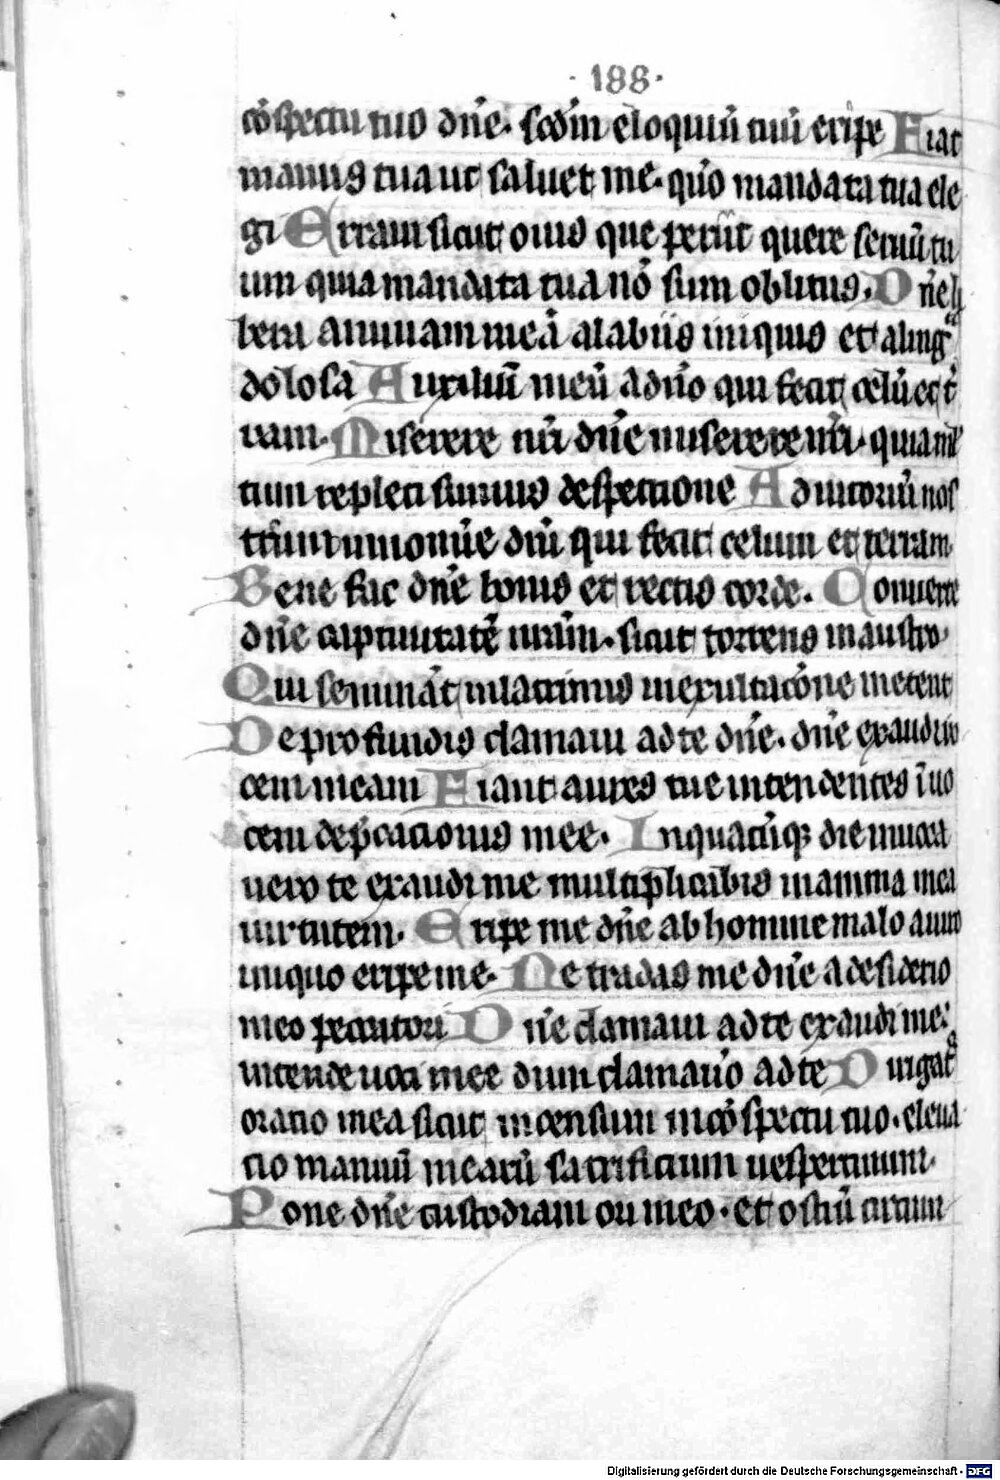 · 188 ·
cōspectu tuo dn̄e. scd̄m eloquiū tuū eripe Fiat
manus tua ut saluet me. quō mandata tua ele
gi Erraui sicut ouis que periit quere seruū tu
um quia mandata tua nō sum oblitus. Dn̄e li
bera animam meā a labiis iniquis et a lingᵃ
dolosa Auxiliū meū a dn̄o qui fecit celū et t̄
ram. Miserere nr̄i dn̄e miserere nr̄i. quia ml̄
tum repleti sumus despectione Adiutoriū nos
trum in nomīe dn̄i qui fecit celum et terram
Bene fac dn̄e bonis et rectis corde. Conuerte
dn̄e captiuitatē nr̄am. sicut torrens in austro.
Qui semināt in lacrimis in exultacōne metent
De profundis clamaui ad te dn̄e. dn̄e exaudi uo
cem meam Fiant aures tue intendentes ī uo
cem dep̄cacionis mee. In quacūqꝫ die inuoca
uero te exaudi me multiplicabis in anima mea
uirtutem. Eripe me dn̄e ab homine malo a uiro
iniquo eripe me. Ne tradas me dn̄e a desiderio
meo peccatori Dn̄e clamaui ad te exaudi me:
intende uoci mee dum clamauo ad te Dirigatᵃ
oratio mea sicut incensum in cōspectu tuo. eleua
tio manuū mearū sacrificium uespertinum.
Pone dn̄e custodiam ori meo. et ostiū circum
Digitalisierung gefördert durch die Deutsche Forschungsgemeinschaft - DFG